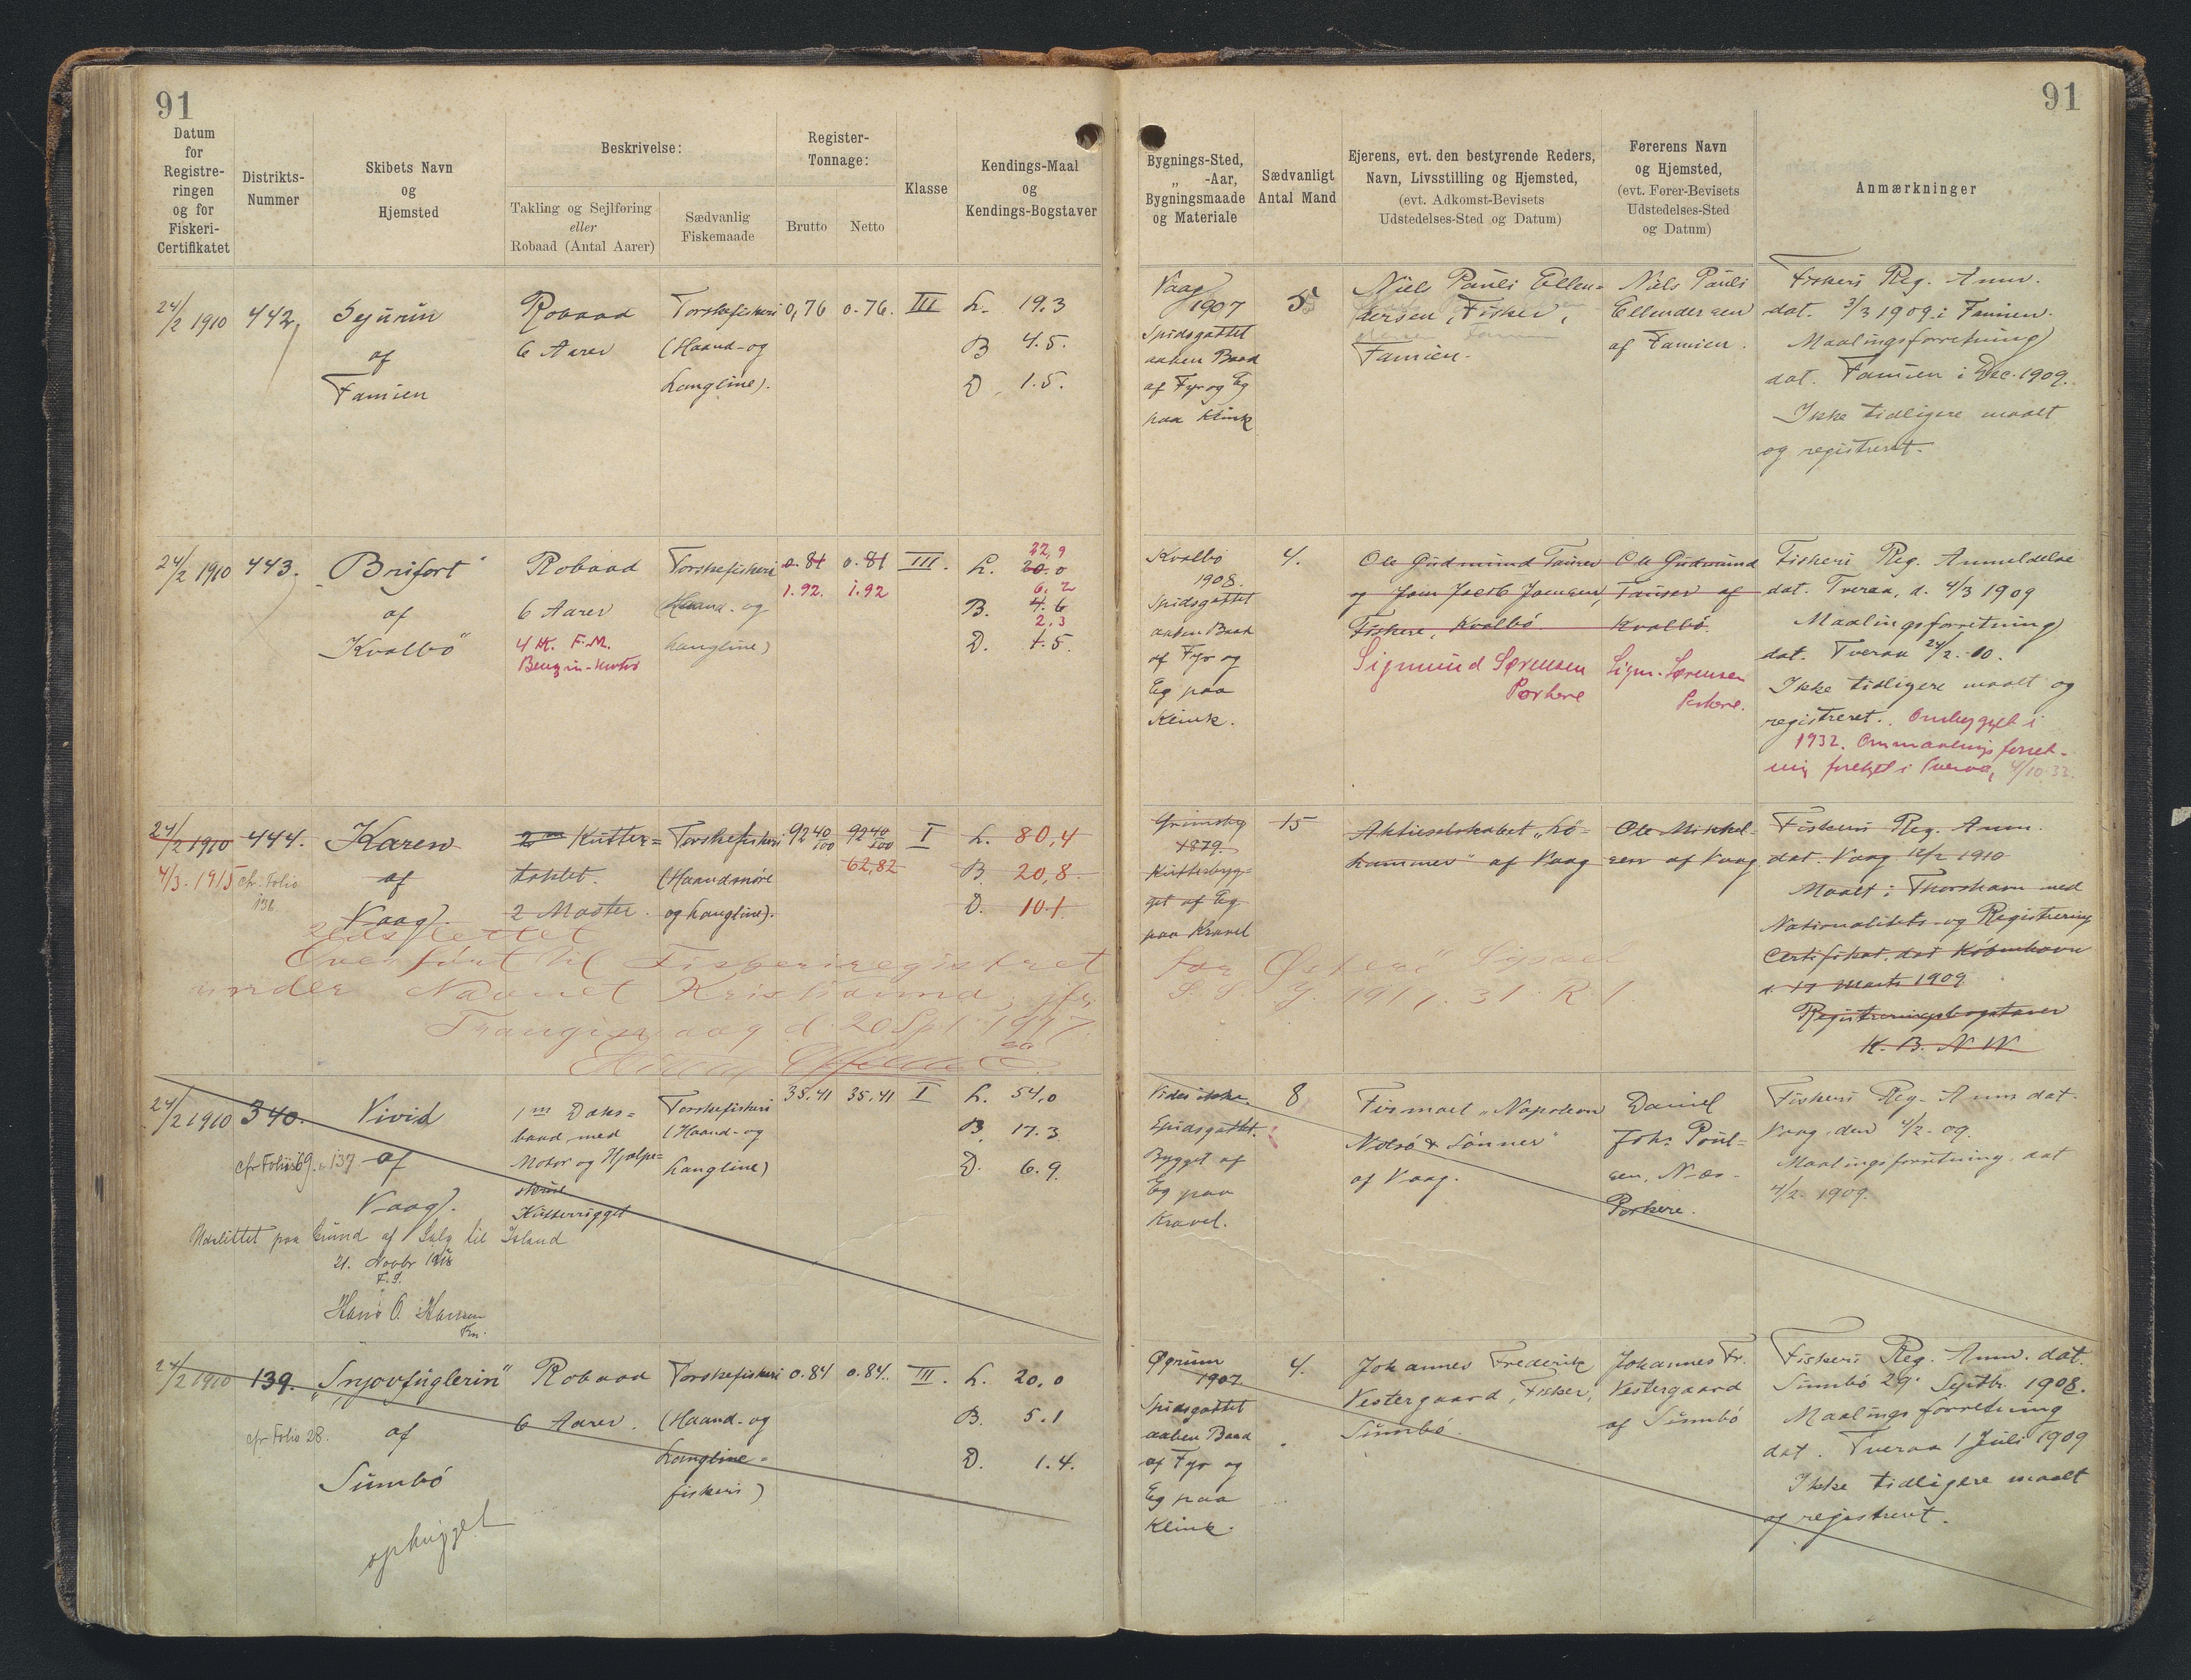 91
91
Datum
for
Registre-
ringen
og for
Fiskeri-
Certifikatet
Distrikts-
Nummer
Skibets Navn
og
Hjemsted
Beskrivelse:
Takling og Sejlføring
eller
Robaad (Antal Aarer)
Sædvanlig
Fiskemaade
Register-
Tonnage:
Brutto
Netto
Klasse
Kendings-Maal
og
Kendings-Bogstaver
Bygnings-Sted,
„ -Aar,
Bygningsmaade
og Materiale
Sædvanligt
Antal Mand
Ejerens, evt. den bestyrende Reders,
Navn, Livsstilling og Hjemsted,
(evt. Adkomst-Bevisets
Udstedelses-Sted og Datum)
Førerens Navn
og Hjemsted,
(evt. Fører-Bevisets
Udstedelses-Sted
og Datum)
Anmærkninger
24/2 1910
442,
Sejurin
af
Famien
Robaad
6 Aarer
Torskefiskeri
(Haand- og
Langline).
0,76
0.76.
III
L. 19.3
B 4.5.
D. 1.5.
Vaag
1907
Spidsgattet
aaben Baad
af Fyr og Eg
paa Klink
5
Niels Pauli Ellen-
dersen, Fisker,
Famien.
Niels Pauli
Ellendersen
af Famien.
Fiskeri Reg. Anm.
dat. 3/3 1909 i Famien.
Maalingsforretning
dat. Famien i Dec. 1909.
Ikke tidligere maalt
og registreret.
24/2 1910
443.
„Brifort
af
Kvalbø"
Robaad
6 Aarer
4 H.K. F.M.
Benzin-motor
Torskefiskeri
(Haand- og
Langline)
0.81
1.92.
0.81
1.92
III.
22,9
L. 20.0
6.2
B. 4.6
2,3
D. 1.5.
Kvalbø
1908.
Spidsgattet
aaben Baad
af Fyr og
Eg paa
Klink.
4.
Ole Gudmund Tausen
og Joen Jacob Joensen,
Fiskere, Kvalbø.
Sigmund Sørensen
Porkere
Ole Gudmund
Tausen af
Kvalbø.
Sigm. Sørensen
Porkere.
Fiskeri Reg. Anmeldelse
dat. Tveraa, d. 4/3 1909
Maalingsforretning
dat. Tveraa 24/2. 10.
Ikke tidligere maalt og
registreret. Ombygget i
1932. Ommaalingsforret-
ning foretaget i Tveraa, 4/10.32.
24/2 1910
4/3. 1915
444.
cfr. Folio
Karen
af
Vaag.
Kutter-
taklet.
2 Master.
Torskefiskeri
(Haandsnøre
og Langline).
92 40/100
92 40/100
62,82
I
L. 80,4
B. 20,8.
D. 10.1
Grimsby
1879.
Kutterbyg-
get af Eg
paa Kravel
15
Aktieselskabet „Lø-
hammer" af Vaag
Ole Mikkel-
sen af Vaag.
Fiskeri Reg. Anm.
dat. Vaag 12/2 1910
Maalt i Thorshavn med
Nationalitets- og Registrering
Certifikat. dat København
d. 17 Marts 1909.
Registreringsbogstaver
N. B. N. W.
Udslettet
Overført til Fiskeriregistret for Østerø Syssel
under Navnet Kristianund, jfr. S. S. J. 1917. 31. R 1.
Trangisvaag d. 20 Spt. 1917.
24/2 1910
340.
cfr Folio 69. & 137
Vivid
af
Vaag.
1 m Daks-
baad med
Motor og Hjælpe-
skrue
Kutterrigget
Torskefiskeri
(Haand- og
Langline)
35.41
35.41
I
L. 54,0
B. 17.3.
D. 6.9.
Udslettet paa Grund af Salg til Island
21. Novbr 1918
F. S.
Hans O. Hansen
Fm.
Vides ikke.
Spidsgattet.
Bygget af
Eg paa
Kravel.
8
Firmaet „Napoleon
Nolsø & Sønner"
af Vaag.
Daniel
Joh. Poul-
sen, Næs-
Porkere.
Fiskeri Reg. Anm dat.
Vaag den 4/2. 09.
Maalingsforretning dat
4/2. 1909.
24/2 1910
139.
cfr Folio 28.
„Snjovfuglerin"
af
Sumbø
ophugget
Robaad
6 Aarer.
Torskefiskeri
(Haand- og
Langline-
fiskeri)
0.84
0.84.
III.
L. 20,0
B. 5.1
D. 1.4.
Øgrum
1907
Spidsgattet
aaben Baad
af Fyr og
Eg paa
Klink.
4.
Johannes Frederik
Vestergaard, Fisker,
Sumbø.
Johannes Fr.
Vestergaard
af Sumbø
Fiskeri Reg. Anm. dat.
Sumbø 29. Septbr. 1908.
Maalingsforretning
dat. Tveraa 1 Juli 1909
Ikke tidligere maalt
og registreret.